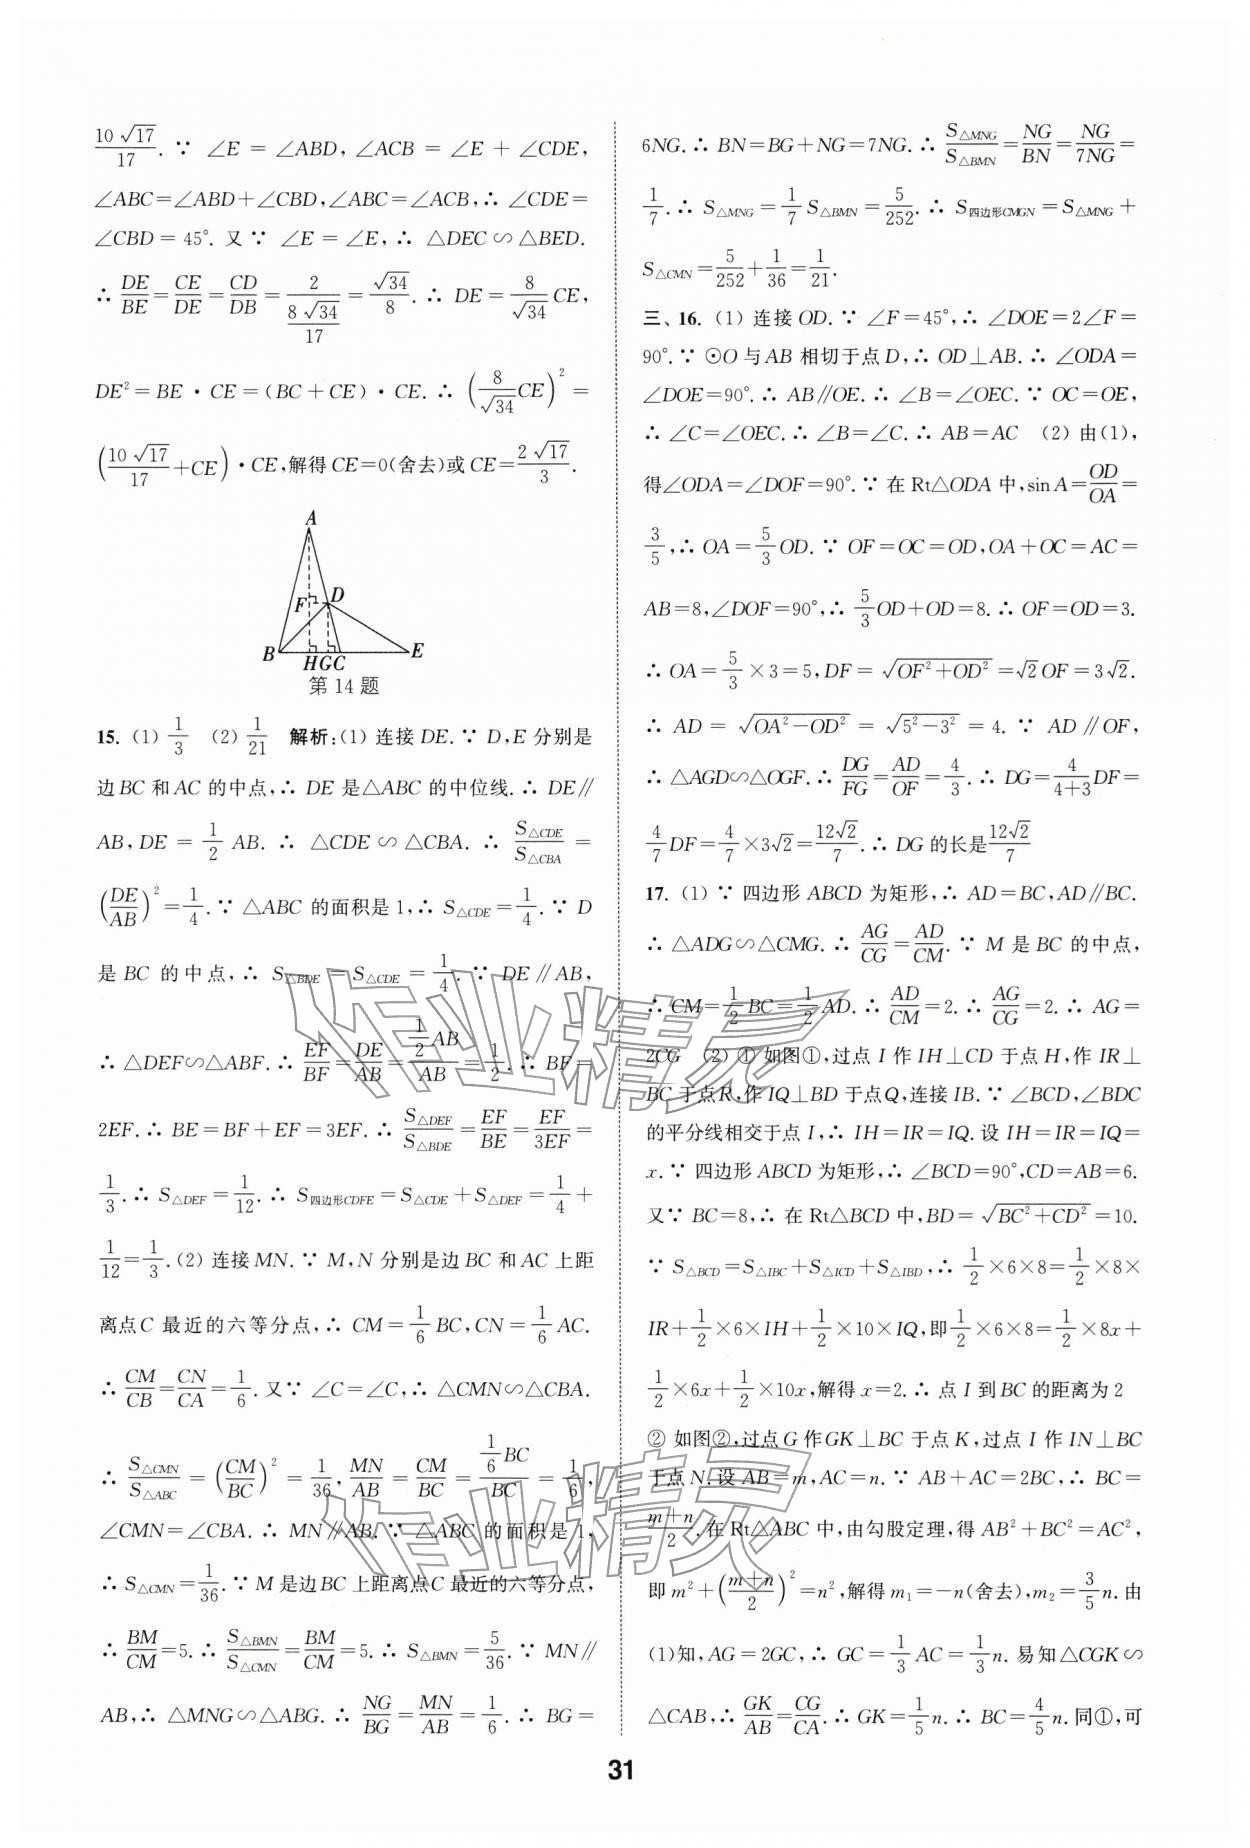 $\frac{10\sqrt{17}}{17}$. ∵ ∠E = ∠ABD, ∠ACB = ∠E + ∠CDE,
∠ABC=∠ABD+∠CBD,∠ABC=∠ACB,∴ ∠CDE=
∠CBD = 45°. 又∵ ∠E = ∠E, ∴ △DEC ∽ △BED.
∴ $\frac{DE}{BE}=\frac{CE}{DE}=\frac{CD}{DB}=\frac{2}{\frac{8\sqrt{34}}{17}}=\frac{\sqrt{34}}{8}$. ∴ DE=$\frac{8}{\sqrt{34}}$CE,
DE²=BE・CE=(BC+CE)・CE. ∴ $\left(\frac{8}{\sqrt{34}}CE\right)^2$=
$\left(\frac{10\sqrt{17}}{17}+CE\right)$・CE,解得CE=0(舍去)或CE=$\frac{2\sqrt{17}}{3}$.
A
F D
B H G C E
第14题
15. (1) $\frac{1}{3}$ (2) $\frac{1}{21}$ 解析:(1) 连接DE. ∵ D,E分别是
边BC和AC的中点,∴ DE是△ABC的中位线. ∴ DE∥
AB,DE=$\frac{1}{2}$AB. ∴ △CDE∽△CBA. ∴ $\frac{S_{△CDE}}{S_{△CBA}}$=
$\left(\frac{DE}{AB}\right)^2=\frac{1}{4}$. ∵ △ABC的面积是1,∴ $S_{△CDE}=\frac{1}{4}$. ∵ D
是BC的中点,∴ $S_{△BDE}=S_{△CDE}=\frac{1}{4}$. ∵ DE∥AB,
∴ △DEF∽△ABF. ∴ $\frac{EF}{BF}=\frac{DE}{AB}=\frac{\frac{1}{2}AB}{AB}=\frac{1}{2}$. ∴ BF=
2EF. ∴ BE=BF+EF=3EF. ∴ $\frac{S_{△DEF}}{S_{△BDE}}=\frac{EF}{BE}=\frac{EF}{3EF}$=
$\frac{1}{3}$. ∴ $S_{△DEF}=\frac{1}{12}$. ∴ $S_{四边形CDFE}=S_{△CDE}+S_{△DEF}=\frac{1}{4}$+
$\frac{1}{12}=\frac{1}{3}$. (2) 连接MN. ∵ M,N分别是边BC和AC上距
离点C最近的六等分点,∴ CM=$\frac{1}{6}$BC,CN=$\frac{1}{6}$AC.
∴ $\frac{CM}{CB}=\frac{CN}{CA}=\frac{1}{6}$. 又∵ ∠C=∠C,∴ △CMN∽△CBA.
∴ $\frac{S_{△CMN}}{S_{△ABC}}=\left(\frac{CM}{BC}\right)^2=\frac{1}{36},\frac{MN}{AB}=\frac{CM}{BC}=\frac{\frac{1}{6}BC}{BC}=\frac{1}{6}$,
∠CMN=∠CBA. ∴ MN∥AB. ∵ △ABC的面积是1,
∴ $S_{△CMN}=\frac{1}{36}$. ∵ M是边BC上距离点C最近的六等分点,
∴ $\frac{BM}{CM}$=5. ∴ $\frac{S_{△BMN}}{S_{△CMN}}=\frac{BM}{CM}$=5. ∴ $S_{△BMN}=\frac{5}{36}$. ∵ MN∥
AB,∴ △MNG∽△ABG. ∴ $\frac{NG}{BG}=\frac{MN}{AB}=\frac{1}{6}$. ∴ BG=
6NG. ∴ BN=BG+NG=7NG. ∴ $\frac{S_{△MNG}}{S_{△BMN}}=\frac{NG}{BN}=\frac{NG}{7NG}$=
$\frac{1}{7}$. ∴ $S_{△MNG}=\frac{1}{7}S_{△BMN}=\frac{5}{252}$. ∴ $S_{四边形CMGN}=S_{△MNG}$+
$S_{△CMN}=\frac{5}{252}+\frac{1}{36}=\frac{1}{21}$.
三、16. (1) 连接OD. ∵ ∠F=45°,∴ ∠DOE=2∠F=
90°. ∵ ⊙O与AB相切于点D,∴ OD⊥AB. ∴ ∠ODA=
∠DOE=90°. ∴ AB∥OE. ∴ ∠B=∠OEC. ∵ OC=OE,
∴ ∠C=∠OEC. ∴ ∠B=∠C. ∴ AB=AC (2) 由(1),
得∠ODA=∠DOF=90°. ∵ 在Rt△ODA中,sin A=$\frac{OD}{OA}$=
$\frac{3}{5}$,∴ OA=$\frac{5}{3}$OD. ∵ OF=OC=OD,OA+OC=AC=
AB=8,∠DOF=90°,∴ $\frac{5}{3}$OD+OD=8. ∴ OF=OD=3.
∴ OA=$\frac{5}{3}$×3=5,DF=$\sqrt{OF^2+OD^2}=\sqrt{2}$OF=3$\sqrt{2}$.
∴ AD=$\sqrt{OA^2-OD^2}=\sqrt{5^2-3^2}$=4. ∵ AD∥OF,
∴ △AGD∽△OGF. ∴ $\frac{DG}{FG}=\frac{AD}{OF}=\frac{4}{3}$. ∴ DG=$\frac{4}{4+3}$DF=
$\frac{4}{7}$DF=$\frac{4}{7}$×3$\sqrt{2}$=$\frac{12\sqrt{2}}{7}$. ∴ DG的长是$\frac{12\sqrt{2}}{7}$
17. (1) ∵ 四边形ABCD为矩形,∴ AD=BC,AD∥BC.
∴ △ADG∽△CMG. ∴ $\frac{AG}{CG}=\frac{AD}{CM}$. ∵ M是BC的中点,
∴ CM=$\frac{1}{2}$BC=$\frac{1}{2}$AD. ∴ $\frac{AD}{CM}$=2. ∴ $\frac{AG}{CG}$=2. ∴ AG=
2CG (2) ① 如图①,过点I作IH⊥CD于点H,作IR⊥
BC于点R,作IQ⊥BD于点Q,连接IB. ∵ ∠BCD,∠BDC
的平分线相交于点I,∴ IH=IR=IQ. 设IH=IR=IQ=
x. ∵ 四边形ABCD为矩形,∴ ∠BCD=90°,CD=AB=6.
又∵ BC=8,∴ 在Rt△BCD中,BD=$\sqrt{BC^2+CD^2}$=10.
∵ $S_{△BCD}=S_{△IBC}+S_{△ICD}+S_{△IBD}$,∴ $\frac{1}{2}$×6×8=$\frac{1}{2}$×8×
IR+$\frac{1}{2}$×6×IH+$\frac{1}{2}$×10×IQ,即$\frac{1}{2}$×6×8=$\frac{1}{2}$×8x+
$\frac{1}{2}$×6x+$\frac{1}{2}$×10x,解得x=2. ∴ 点I到BC的距离为2
② 如图②,过点G作GK⊥BC于点K,过点I作IN⊥BC
于点N. 设AB=m,AC=n. ∵ AB+AC=2BC,∴ BC=
$\frac{m+n}{2}$. 在Rt△ABC中,由勾股定理,得AB²+BC²=AC²,
即m²+$\left(\frac{m+n}{2}\right)^2$=n²,解得m₁=-n(舍去),m₂=$\frac{3}{5}$n. 由
(1)知,AG=2GC,∴ GC=$\frac{1}{3}$AC=$\frac{1}{3}$n. 易知△CGK∽
△CAB,∴ $\frac{GK}{AB}=\frac{CG}{CA}$. ∴ GK=$\frac{1}{5}$n. ∴ BC=$\frac{4}{5}$n. 同①,可
31
作业精灵
作业精灵